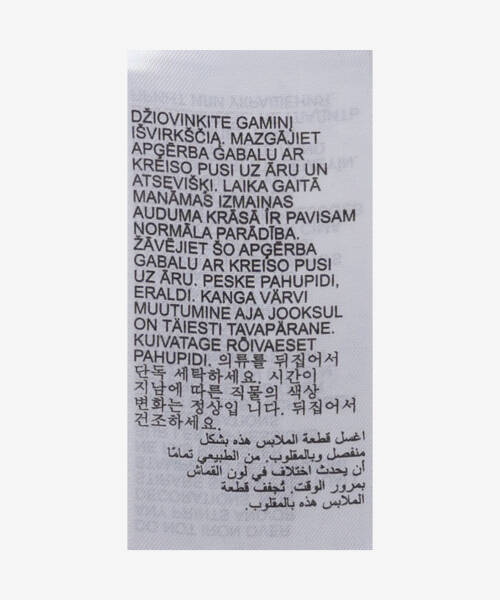 DŽIOVINKITE GAMINĮ
IŠVIRKŠČIĄ. MAZGĀJIET
APĢĒRBA GABALU AR
KREISO PUSI UZ ĀRU UN
ATSEVIŠĶI. LAIKA GAITĀ
MANĀMAS IZMAIŅAS
AUDUMA KRĀSĀ IR PAVISAM
NORMĀLA PARĀDĪBA.
ŽĀVĒJIET ŠO APĢĒRBA
GABALU AR KREISO PUSI
UZ ĀRU. PESKE PAHUPIDI,
ERALDI. KANGA VÄRVI
MUUTUMINE AJA JOOKSUL
ON TÄIESTI TAVAPÄRANE.
KUIVATAGE RÕIVAESET
PAHUPIDI. 의류를 뒤집어서
단독 세탁하세요. 시간이
지남에 따른 직물의 색상
변화는 정상입 니다. 뒤집어서
건조하세요.
اغسل قطعة الملابس هذه بشكل
منفصل وبالمقلوب. من الطبيعي تمامًا
أن يحدث اختلاف في لون القماش
بمرور الوقت. تُجفف قطعة
الملابس هذه بالمقلوب.
DO NOT IRON OVER
ANY PRINTS AND/OR
DECORATIONS